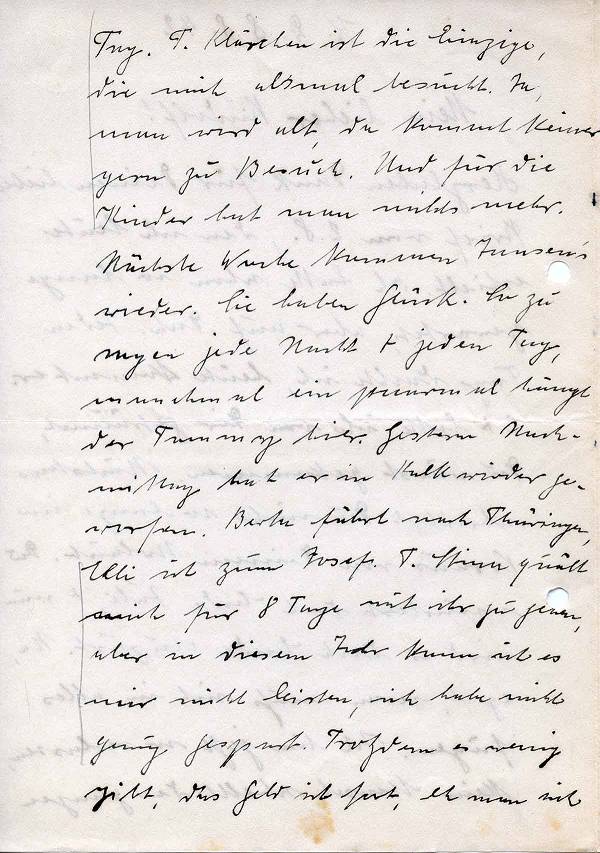 Tag. T. Klärchen ist die Einzige,
die mich aldmal besucht. Ja,
man wird alt, da kommt keiner
gern zu Besuch. Und für die
Kinder hat man nichts mehr.
Nächste Woche kommen Jansen's
wieder. Sie haben Glück. So zu
sagen jede Nacht + jeden Tag,
manchmal ein paarmal hängt
der Tommy hier. Gestern Nach-
mittag hat er in Kalk wieder ge-
worfen. Berta fährt nach Thüringen,
Elli ist zum Josef. T. Stina quält
mich für 8 Tage mit ihr zu gehen,
aber in diesem Jahr kann ich es
mir nicht leisten, ich habe nicht
genug gespart. Trotzdem es wenig
gibt, das Geld ist fort, eh man sich